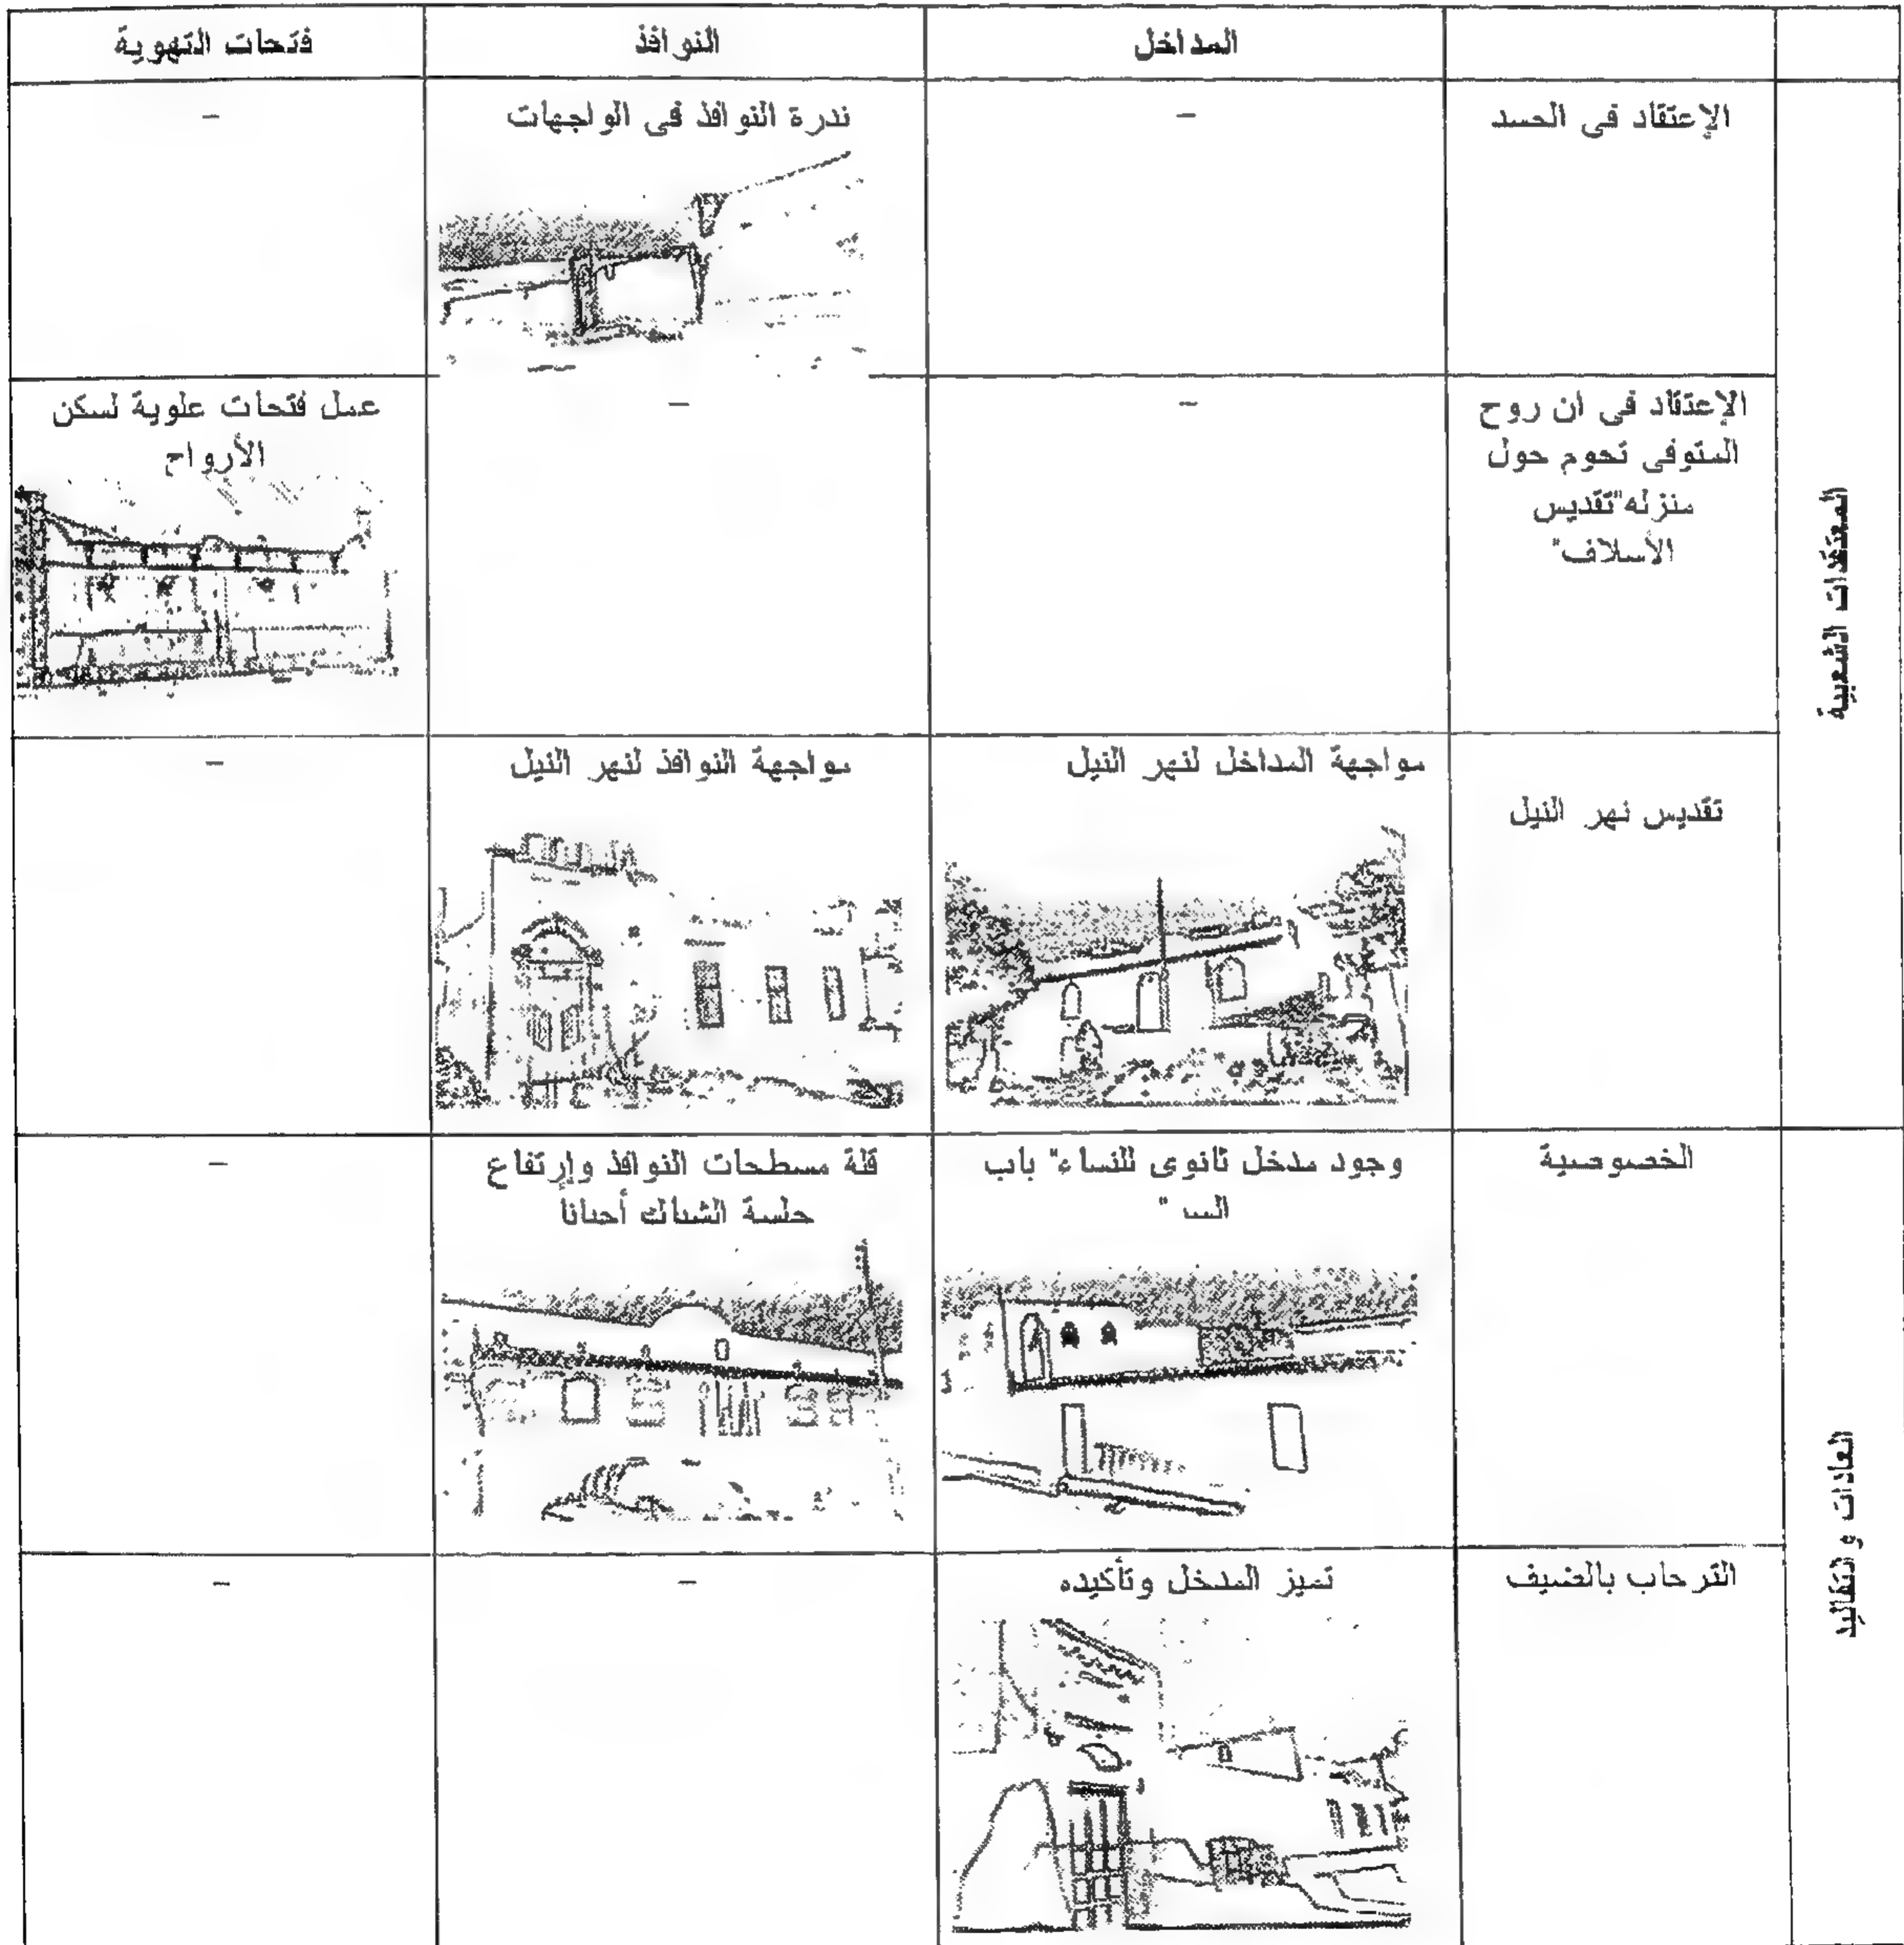 المداخل
النوافذ
فتحات التهوية
المعتقدات الشعبية
الإعتقاد فى الحسد
–
ندرة النوافذ فى الواجهات
–
الإعتقاد فى ان روح
المتوفى تحوم حول
منزله"تقديس
الأسلاف"
–
–
عمل فتحات علوية لسكن
الأرواح
تقديس نهر النيل
مواجهة المداخل لنهر النيل
مواجهة النوافذ لنهر النيل
–
العادات و التقاليد
الخصوصية
وجود مدخل ثانوى للنساء" باب
"
قلة مسطحات النوافذ وإرتفاع
جلسة الشباك أحياناً
–
الترحاب بالضيف
تميز المدخل وتأكيده
–
–